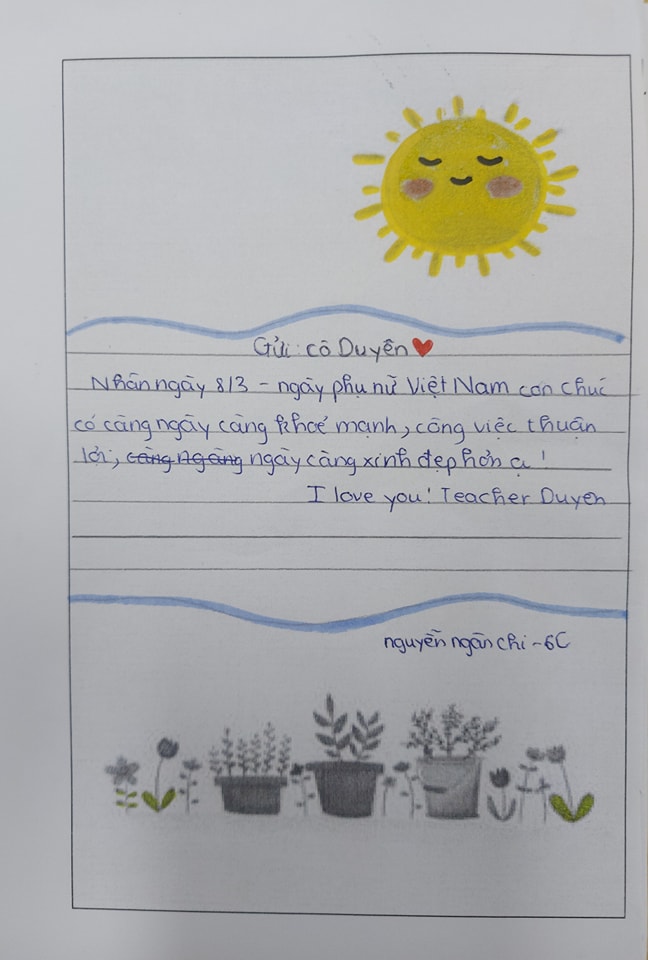 Gửi: cô Duyên
Nhân ngày 8/3 - ngày phụ nữ Việt Nam con chúc
cô càng ngày càng khoẻ mạnh, công việc thuận
lợi, càng ngàng ngày càng xinh đẹp hơn ạ!
I love you! Teacher Duyen
nguyễn ngân chi - 6C